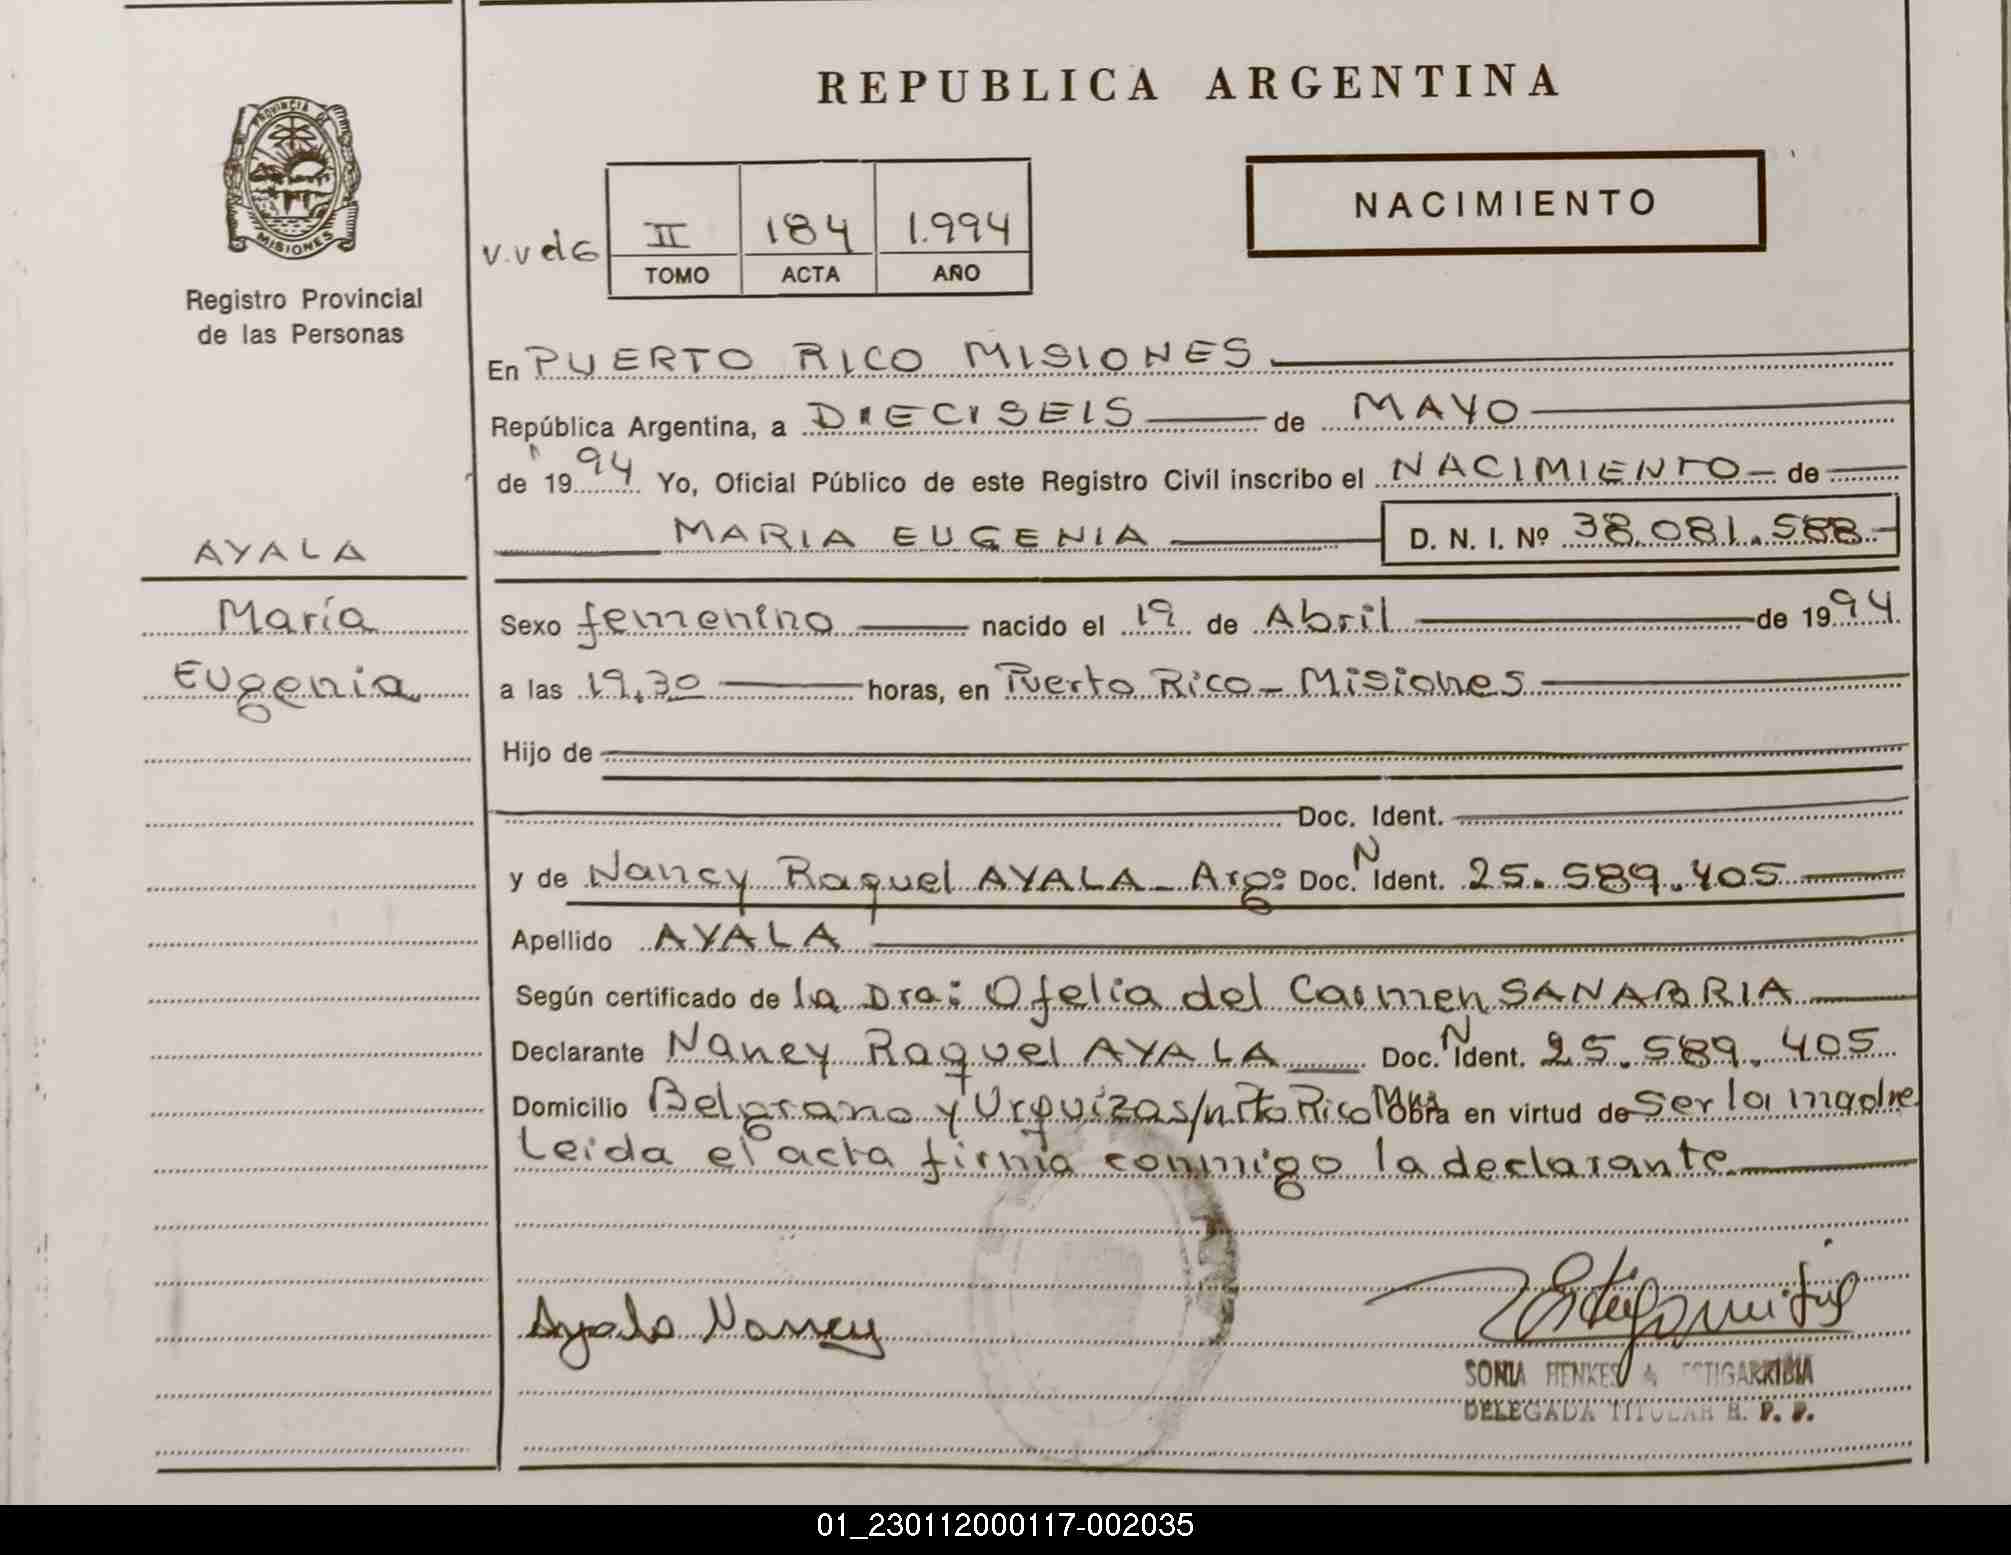 REPUBLICA ARGENTINA
PROVINCIA DE
MISIONES
Registro Provincial
de las Personas
NACIMIENTO
V.V de G
II 184 1.994
TOMO ACTA AÑO
En PUERTO RICO MISIONES
República Argentina, a DIECISEIS de MAYO
de 1994 Yo, Oficial Público de este Registro Civil inscribo el NACIMIENTO de
MARIA EUGENIA D. N. I. Nº 38.081.588
AYALA
María
Eugenia
Sexo femenino nacido el 19 de Abril de 1994
a las 19.30 horas, en Puerto Rico - Misiones
Hijo de
Doc. Ident.
y de Nancy Raquel AYALA - Argº Doc. N Ident. 25.589.405
Apellido AYALA
Según certificado de la Dra: Ofelia del Carmen SANABRIA
Declarante Nancy Raquel AYALA Doc. N Ident. 25.589.405
Domicilio Belgrano y Urquiza s/n Pto Rico Mnes Obra en virtud de ser la madre
Leida el acta firma conmigo la declarante
Ayala Nancy
SONIA HENKES ESTIGARRIBIA
DELEGADA TITULAR R. P. P.
01_230112000117-002035